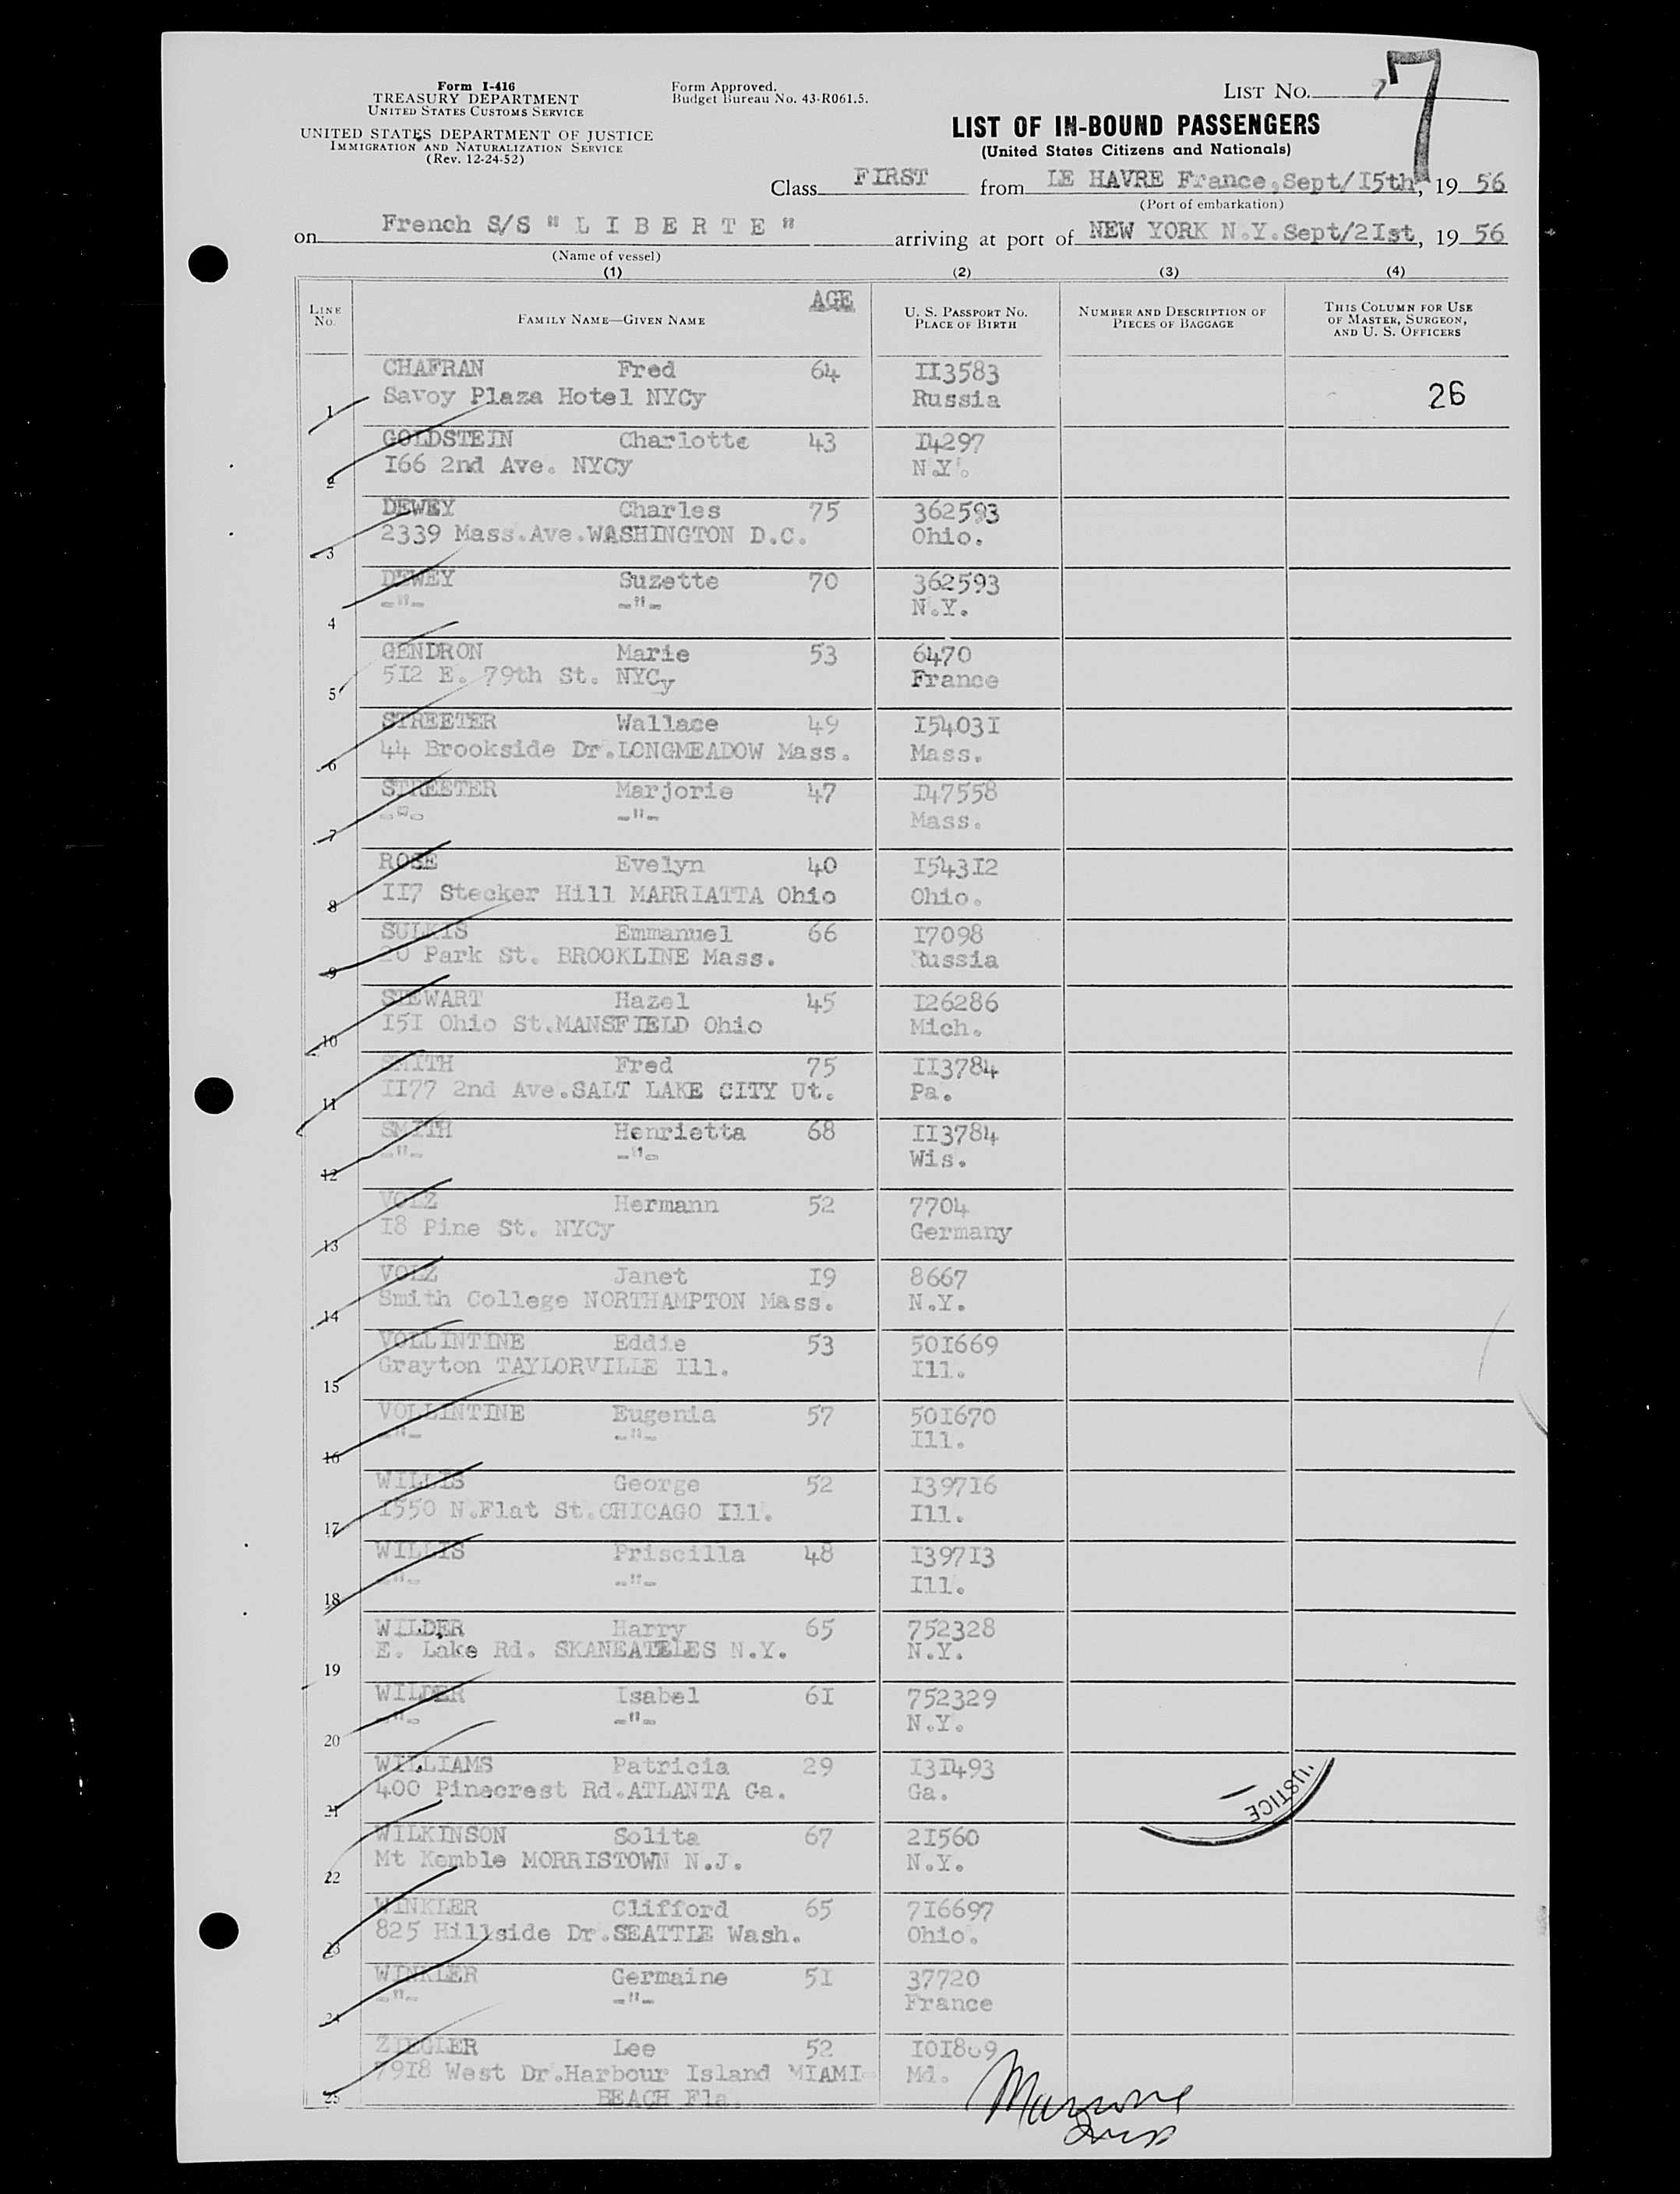 Form I-416
TREASURY DEPARTMENT
UNITED STATES CUSTOMS SERVICE
UNITED STATES DEPARTMENT OF JUSTICE
IMMIGRATION AND NATURALIZATION SERVICE
(Rev. 12-24-52)
Form Approved.
Budget Bureau No. 43-R061.5.
LIST No. 7 7
LIST OF IN-BOUND PASSENGERS
(United States Citizens and Nationals)
Class FIRST from LE HAVRE France, Sept/I5th, 19 56
(Port of embarkation)
on French S/S " L I B E R T E " arriving at port of NEW YORK N.Y.Sept/2Ist, 19 56
(Name of vessel)
(1) (2) (3) (4)
LINE No. FAMILY NAME—GIVEN NAME AGE U. S. PASSPORT NO. PLACE OF BIRTH NUMBER AND DESCRIPTION OF PIECES OF BAGGAGE THIS COLUMN FOR USE OF MASTER, SURGEON, AND U. S. OFFICERS
CHAFRAN Fred 64 II3583
1 Savoy Plaza Hotel NYCy Russia 26
GOLDSTEIN Charlotte 43 I4297
2 I66 2nd Ave. NYCy N.Y.
DEWEY Charles 75 362593
3 2339 Mass.Ave.WASHINGTON D.C. Ohio.
DEWEY Suzette 70 362593
4 -"- -"- N.Y.
GENDRON Marie 53 6470
5 5I2 E. 79th St. NYCy France
STREETER Wallace 49 I5403I
6 44 Brookside Dr.LONGMEADOW Mass. Mass.
STREETER Marjorie 47 I47558
7 -"- -"- Mass.
ROSE Evelyn 40 I543I2
8 II7 Stecker Hill MARRIATTA Ohio Ohio.
SULKIS Emmanuel 66 I7098
9 20 Park St. BROOKLINE Mass. Russia
STEWART Hazel 45 I26286
10 I5I Ohio St.MANSFIELD Ohio Mich.
SMITH Fred 75 II3784
11 II77 2nd Ave.SALT LAKE CITY Ut. Pa.
SMITH Henrietta 68 II3784
12 -"- -"- Wis.
VOLZ Hermann 52 7704
13 I8 Pine St. NYCy Germany
VOLZ Janet I9 8667
14 Smith College NORTHAMPTON Mass. N.Y.
VOLLINTINE Eddie 53 50I669
15 Grayton TAYLORVILLE Ill. Ill.
VOLLINTINE Eugenia 57 50I670
16 -"- -"- Ill.
WILLIS George 52 I397I6
17 I550 N.Flat St.CHICAGO Ill. Ill.
WILLIS Priscilla 48 I397I3
18 -"- -"- Ill.
WILDER Harry 65 752328
19 E. Lake Rd. SKANEATELES N.Y. N.Y.
WILDER Isabel 6I 752329
20 -"- -"- N.Y.
WILLIAMS Patricia 29 I3I493
21 400 Pinecrest Rd.ATLANTA Ga. Ga.
WILKINSON Solita 67 2I560
22 Mt Kemble MORRISTOWN N.J. N.Y.
WINKLER Clifford 65 7I6697
23 825 Hillside Dr.SEATTLE Wash. Ohio.
WINKLER Germaine 5I 37720
24 -"- -"- France
ZIEGLER Lee 52
25 79I8 West Dr.Harbour Island MIAMI- Md.
BEACH Fla.
USTICE